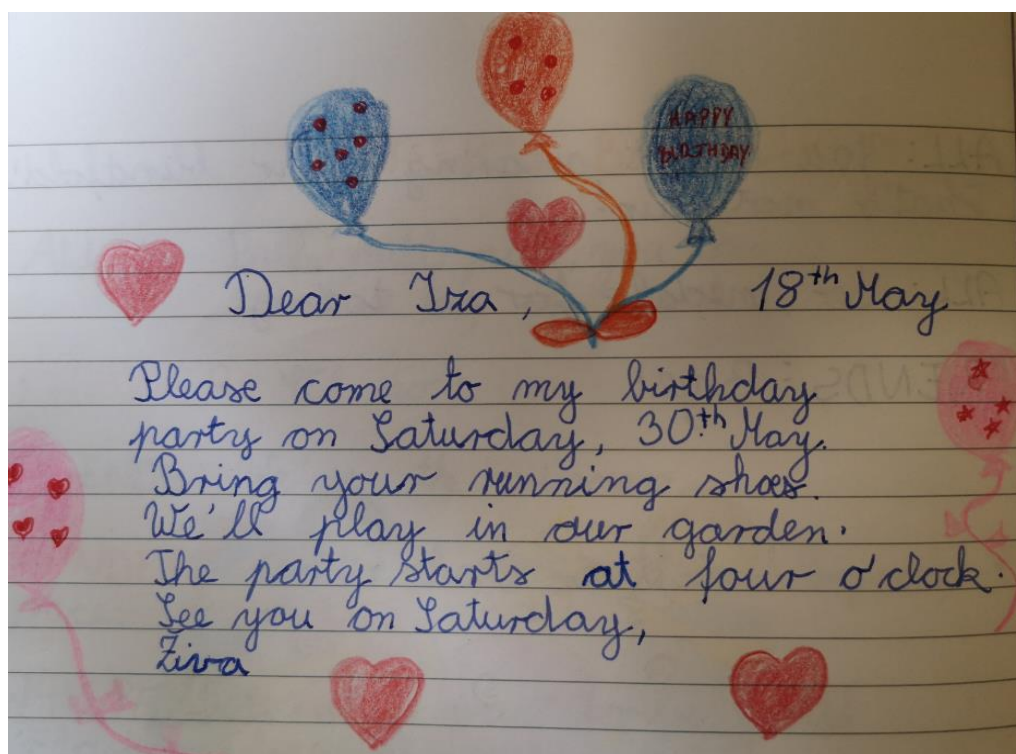 HAPPY
BIRTHDAY
Dear Iza, 18th May
Please come to my birthday
party on Saturday, 30th May.
Bring your running shoes.
We'll play in our garden.
The party starts at four o'clock.
See you on Saturday,
Živa